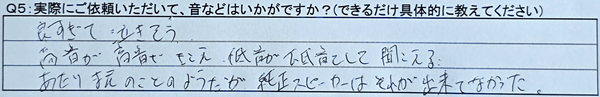 Q5:実際にご依頼いただいて、音などはいかがですか?(できるだけ具体的に教えてください)
良すぎて 泣きそう
高音が 高音で きこえ 低音が 低音として 聞こえる
あたりまえのことのようだが 純正スピーカーは それが 出来てなかった。